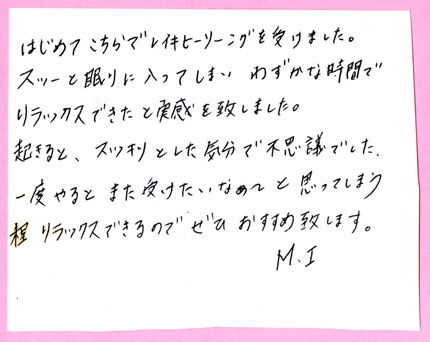 はじめて こちらでレイキヒーリングを受けました。
スッーと眠りに入ってしまい わずかな時間で
リラックスできたと実感を致しました。
起きると、スッキリとした気分で不思議でした、
一度やると また受けたいなぁ〜と 思ってしまう
程 リラックスできるので ぜひ おすすめ致します。
M.I